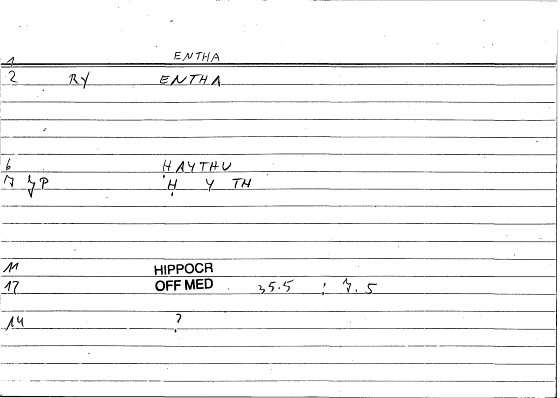 1 ENTHA
2 RY ENTHA
6 HAYTHU
7 P H Y TH
11 HIPPOCR
12 OFF MED 35.5 : 7.5
14 ?